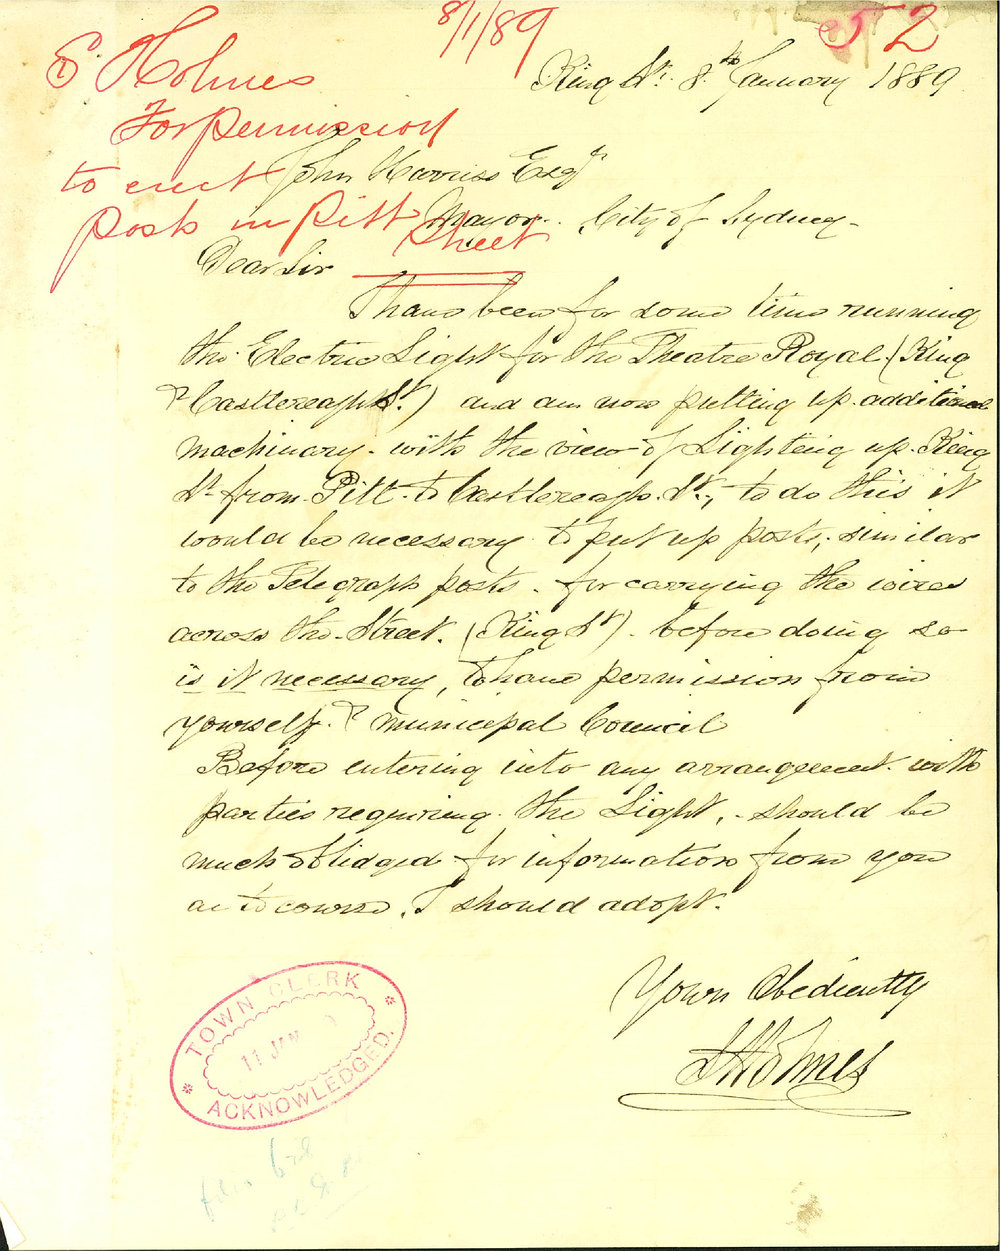 8/1/89
52
E Holmes
For permission
to erect
posts in Pitt
Street
King St. 8th January 1889
John Harriss Esqr
Mayor. City of Sydney-
Dear Sir
I have been for some time running
the Electric Light for the Theatre Royal (King
& Castlereagh St.) and am now putting up additional
machinary. with the view of Lighting up King
St from Pitt to Castlereagh St., to do this it
would be necessary to put up posts, similar
to the Telegraph posts. for carrying the wires
across the Street. (King St). before doing so
is it necessary, to have permission from
yourself. & municipal Council
Before entering into any arrangement with
parties requiring the Light, should be
much obliged for information from you
as to course, I should adopt.
Yours Obediently
Holmes
TOWN CLERK
11 JAN
ACKNOWLEDGED.